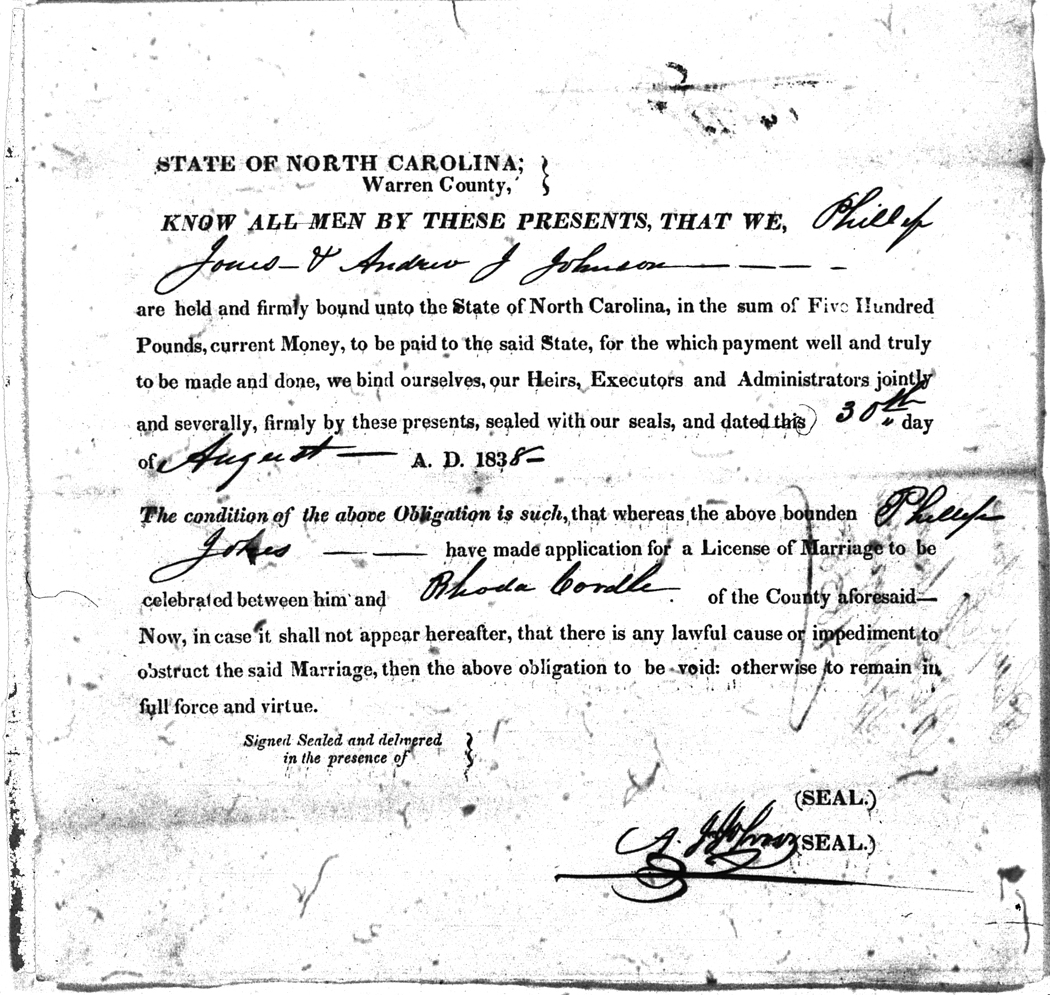 STATE OF NORTH CAROLINA; }
Warren County, }
KNOW ALL MEN BY THESE PRESENTS, THAT WE, Phillip
Jones — & Andrew J Johnson — — — -
are held and firmly bound unto the State of North Carolina, in the sum of Five Hundred
Pounds, current Money, to be paid to the said State, for the which payment well and truly
to be made and done, we bind ourselves, our Heirs, Executors and Administrators jointly
and severally, firmly by these presents, sealed with our seals, and dated this 30th day
of August — A. D. 1838 —
The condition of the above Obligation is such, that whereas the above bounden Phillip
Jones — — have made application for a License of Marriage to be
celebrated between him and Rhoda Cordle . of the County aforesaid—
Now, in case it shall not appear hereafter, that there is any lawful cause or impediment to
obstruct the said Marriage, then the above obligation to be void: otherwise to remain in
full force and virtue.
Signed Sealed and delivered }
in the presence of }
(SEAL.)
A. J Johnson (SEAL.)